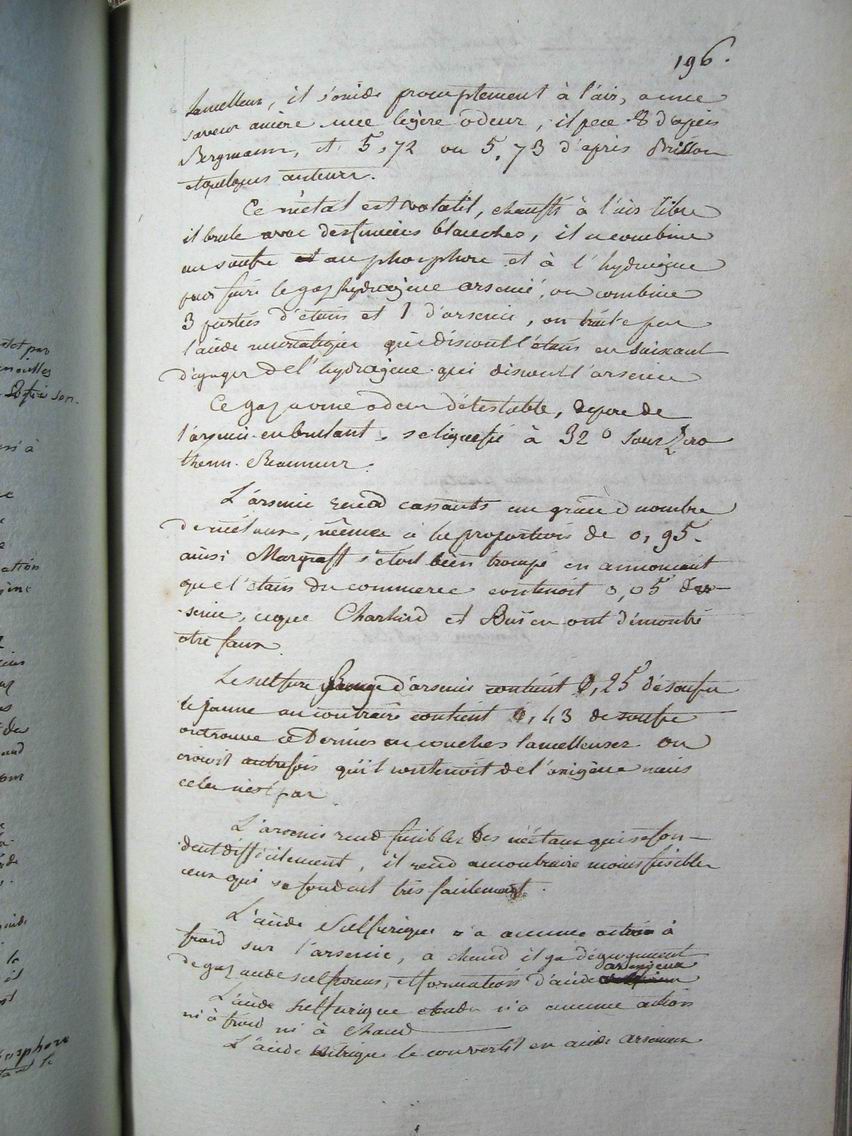 196.
lamelleux, il s'oxide promptement à l'air, a une
saveur amère une légère odeur, il pèse 8 d'après
Bergmann, et 5,72 ou 5,73 d'après Brisson
et quelques auteurs.
Ce métal est volatil, chauffé à l'air libre
il brule avec des fumées blanches, il se combine
au soufre et au phosphore et à l'hydrogène
pour faire le gaz hydrogène arsenié, on combine
3 parties d'étain et 1 d'arsenic, on traite par
l'acide muriatique qui dissout l'étain en faisant
dégager de l'hydrogène qui dissout l'arsenic
Ce gaz a une odeur détestable, depose de
l'arsenic en brulant, se liquefie à 32° sous Zero
therm. Reaumur.
L'arsenic rend cassants un grand nombre
de métaux, même à la proportion de 0,95.
ainsi Margraff s'étoit bien trompé en annoncant
que l'étain du commerce contenoit 0,05 d'ar-
senic, ce que Charlard et Bayen ont démontré
être faux.
Le sulfure rouge d'arsenic contient 0,25 de soufre
le jaune au contraire contient 0,43 de soufre
on trouve ce dernier en couches lamelleuses on
croioit autrefois qu'il contenoit de l'oxigène mais
cela n'est pas
L'arsenic rend fusibles des métaux qui se fon-
dent difficilement, il rend au contraire moins fusibles
ceux qui se fondent très facilement.
L'acide sulfurique n'a aucune action à
froid sur l'arsenic, à chaud il y a dégagement
de gaz acide sulfureux, et formation d'acide arsenieux
L'acide sulfurique etendu n'a aucune action
ni à froid ni à chaud
L'acide nitrique le convertit en acide arsenieux